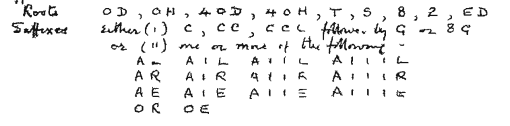 Roots OD, OH, 4OD, 4OH, T, S, 8, 2, ED
Suffixes either (i) C, CC, CCC followed by G or 8G
or (ii) one or more of the following -
AL AIL AIIL AIIIL
AR AIR AIIR AIIIR
AE AIE AIIE AIIIE
OR OE